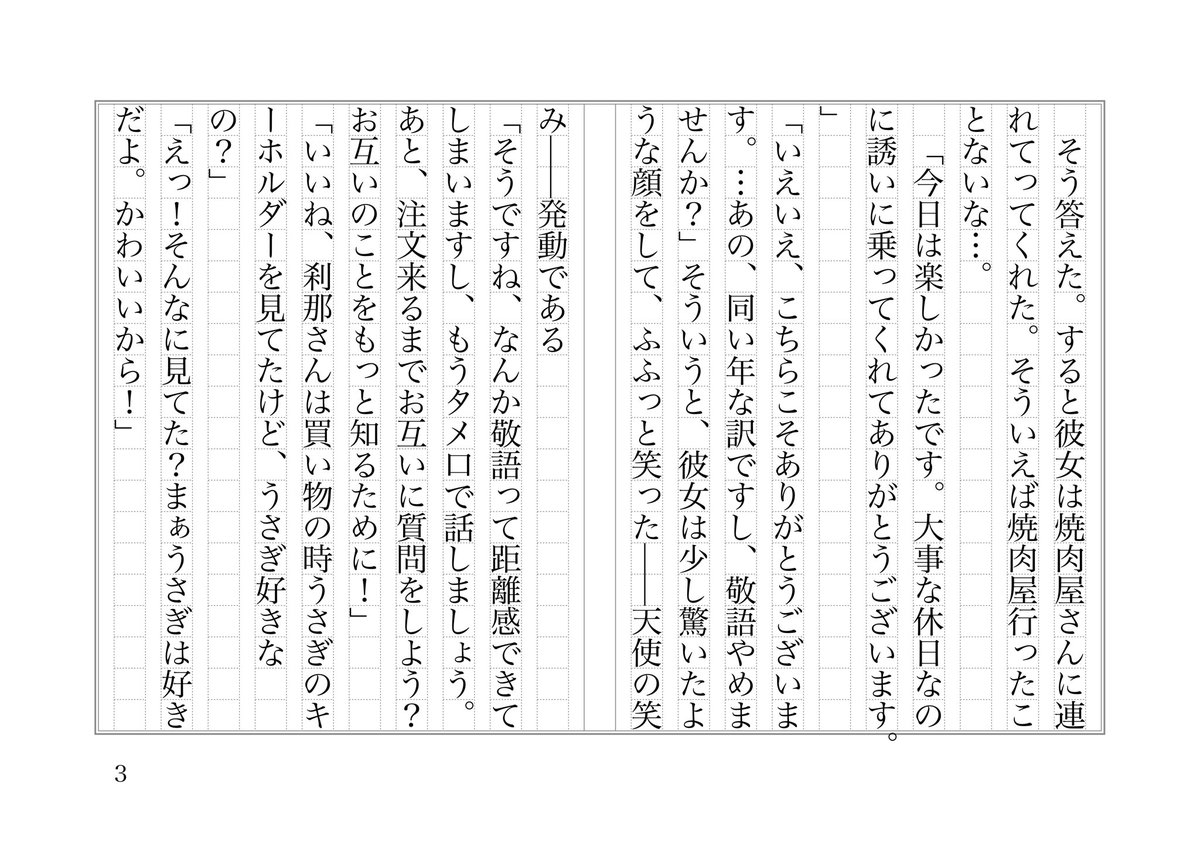 そう答えた。すると彼女は焼肉屋さんに連
れてってくれた。そういえば焼肉屋行ったこ
とないな…。
　「今日は楽しかったです。大事な休日なの
に誘いに乗ってくれてありがとうございます。
」
「いえいえ、こちらこそありがとうございま
す。…あの、同い年な訳ですし、敬語やめま
せんか？」そういうと、彼女は少し驚いたよ
うな顔をして、ふふっと笑った――天使の笑
み――発動である
「そうですね、なんか敬語って距離感できて
しまいますし、もうタメ口で話しましょう。
あと、注文来るまでお互いに質問をしよう？
お互いのことをもっと知るために！」
「いいね、刹那さんは買い物の時うさぎのキ
ーホルダーを見てたけど、うさぎ好きな
の？」
「えっ！そんなに見てた？まぁうさぎは好き
だよ。かわいいから！」
3